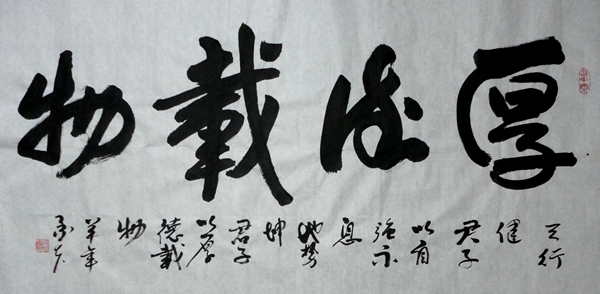 厚德載物
天行
健
君子
以自
強不
息
地势
坤
君子
以厚
德載
物
羊年